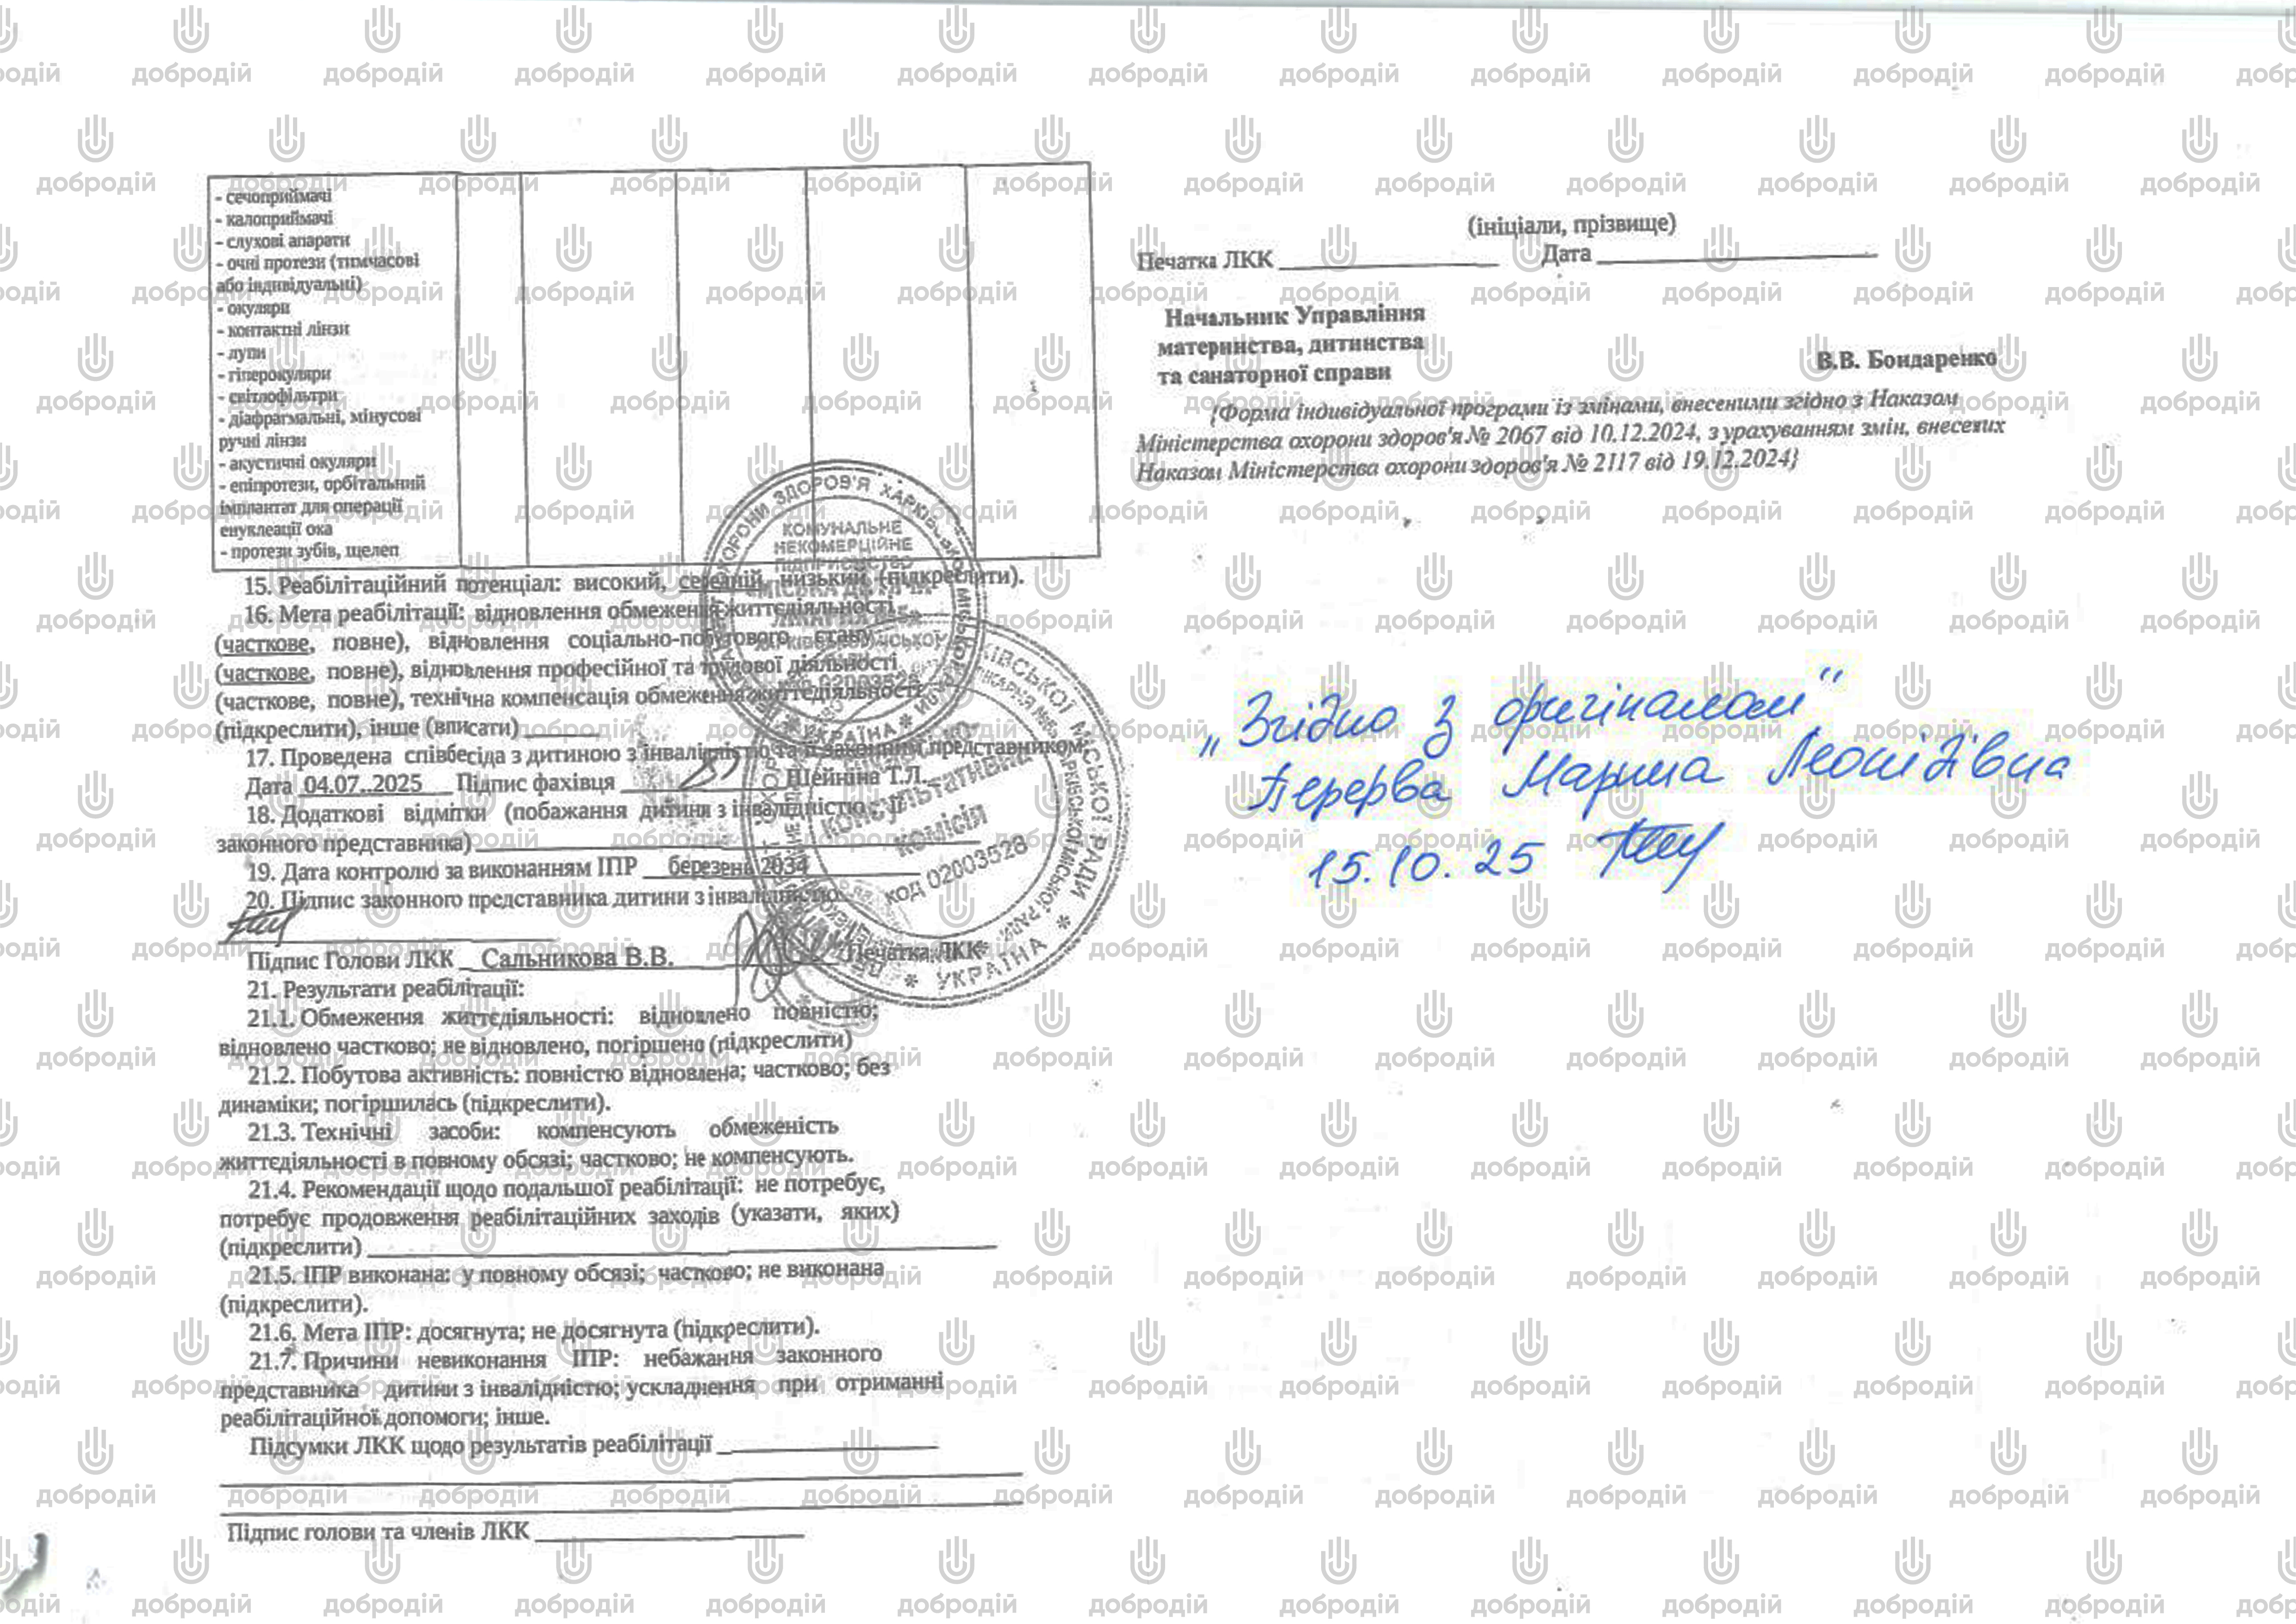 - сечоприймачі
- калоприймачі
- слухові апарати
- очні протези (тимчасові
або індивідуальні)
- окуляри
- контактні лінзи
- лупи
- гіперокуляри
- світлофільтри
- діафрагмальні, мінусові
ручні лінзи
- акустичні окуляри
- епіпротези, орбітальний
імплантат для операції
енуклеації ока
- протези зубів, щелеп
15. Реабілітаційний потенціал: високий, середній, низький (підкреслити).
16. Мета реабілітації: відновлення обмеження життєдіяльності
(часткове, повне), відновлення соціально-побутового стану
(часткове, повне), відновлення професійної та трудової діяльності
(часткове, повне), технічна компенсація обмеження життєдіяльності
(підкреслити), інше (вписати)
17. Проведена співбесіда з дитиною з інвалідністю та її законним представником:
Дата 04.07..2025 Підпис фахівця Шейніна Т.Л.
18. Додаткові відмітки (побажання дитини з інвалідністю, її
законного представника)
19. Дата контролю за виконанням ІПР березень 2034
20. Підпис законного представника дитини з інвалідністю
Підпис Голови ЛКК Сальникова В.В. Печатка ЛКК
21. Результати реабілітації:
21.1. Обмеження життєдіяльності: відновлено повністю;
відновлено частково; не відновлено, погіршено (підкреслити)
21.2. Побутова активність: повністю відновлена; частково; без
динаміки; погіршилась (підкреслити).
21.3. Технічні засоби: компенсують обмеженість
життєдіяльності в повному обсязі; частково; не компенсують.
21.4. Рекомендації щодо подальшої реабілітації: не потребує,
потребує продовження реабілітаційних заходів (указати, яких)
(підкреслити)
21.5. ІПР виконана: у повному обсязі; частково; не виконана
(підкреслити).
21.6. Мета ІПР: досягнута; не досягнута (підкреслити).
21.7. Причини невиконання ІПР: небажання законного
представника дитини з інвалідністю; ускладнення при отриманні
реабілітаційної допомоги; інше.
Підсумки ЛКК щодо результатів реабілітації
Підпис голови та членів ЛКК
КОМУНАЛЬНЕ
НЕКОМЕРЦІЙНЕ
ПІДПРИЄМСТВО
УКРАЇНА
консультативна
комісія
код 02003528
УКРАЇНА
(ініціали, прізвище)
Печатка ЛКК Дата
Начальник Управління
материнства, дитинства
та санаторної справи
В.В. Бондаренко
{Форма індивідуальної програми із змінами, внесеними згідно з Наказом
Міністерства охорони здоров'я № 2067 від 10.12.2024, з урахуванням змін, внесених
Наказом Міністерства охорони здоров'я № 2117 від 19.12.2024}
„Згідно з оригіналом"
Перерва Марина Леонідівна
15.10.25
добродій